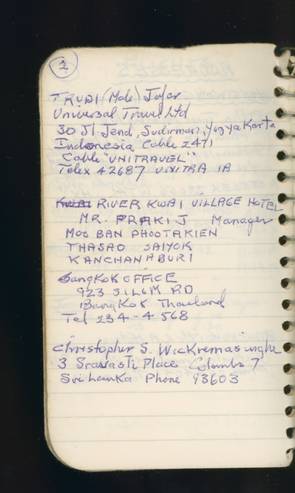 2
TRUDI (Mode) Jafar
Universal Travel Ltd
30 Jl Jend, Sudirman, Yogya Karta
Indonesia Cable 2471
Cable "UNITRAVEL"
Telex 42687 VIXTRA IA
RIVER KWAI VILLAGE HOTEL
MR. PRAKIJ Manager
MOO BAN PHOOTAKIEN
THASAO SAIYOK
KANCHANABURI
BangKoK OFFICE
923 SILOM RD
BangKoK Thailand
Tel 234-4568
Christopher S. Wickremasinghe
3 Sravasti Place Colombo 7
Sri Lanka Phone 93603